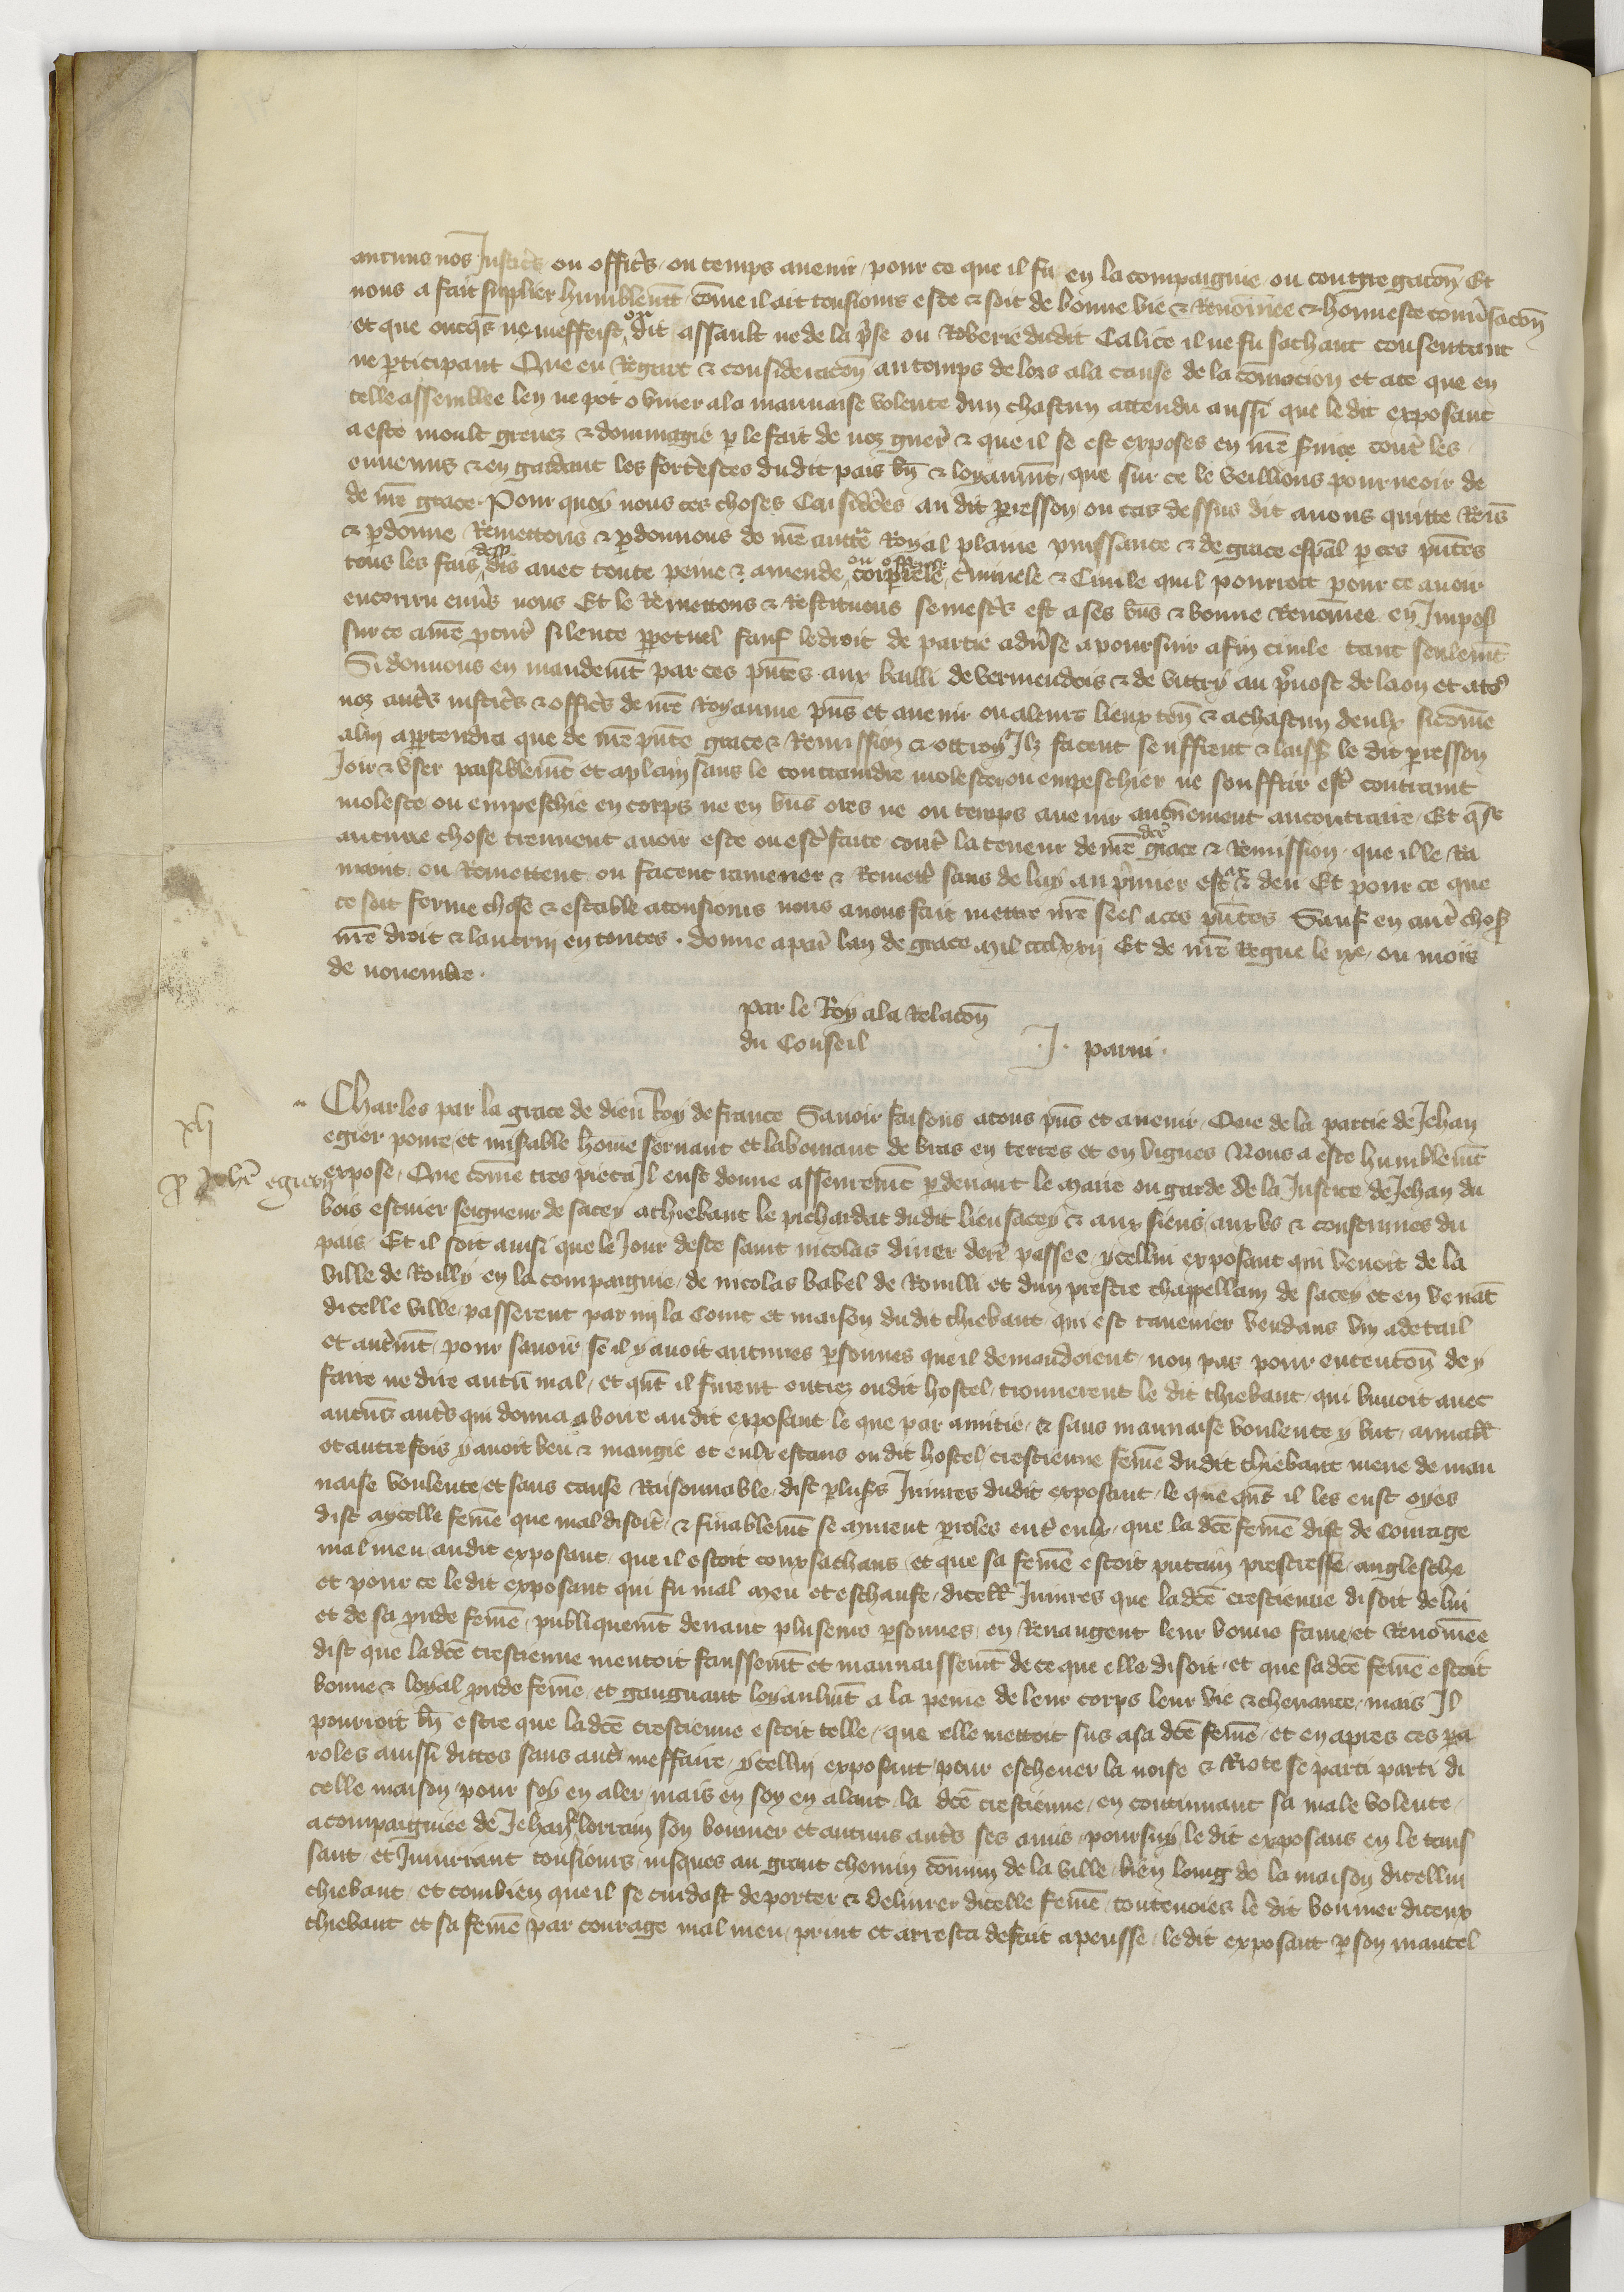 aucuns nos Justicˀs ou officˀs ou temps avenir pour ce que il fu en la compaignie ou congregacōn Et
nous a fait supplier humblemt̄ cōme il ait tousiours este & soit de bonne vie & Renōmee & honneste convˀsacōn
et que oncqˀs ne meffeist ou dit assault ne de la pˀse ou Roberie dudit Calice il ne fu sachant consentant
ne p̱ticipant Que en Regart & consideracōn au temps de lors a la cause de la cōmocion et a ce que en
telle assemblee len ne pot obvier a la mauvaise volente dun chascun attendu aussi que le dit exposant
a este moult grevez & dommagie p̱ le fait de noz guerˀ & que il se est exposes en nr̄e sˀvice contˀ les
ennemis & en gardant les forteresces dudit pais bn̄ & loyaumt̄ que sur ce le veillions pourveoir de
de nr̄e grace Pour quoy nous ces choses Considˀees au dit presson ou cas dessus dit avons quitte Remis
& p̱donne Remettons & p̱donnons de nr̄e auctˀte Royal plaine puissance & de grace esp̄al p̱ ces pn̄tes
tous les fais dess dis avec toute peine & amende corporele cˀiminele & Civile quil pourroit pour ce avoir
encorru envˀs nous Et le Remettons & Restituons se mestˀs est a ses bn̄s & bonne Renōmee en Impos
sur ce a nr̄e procurˀ silence p̱petuel sauf le droit de partie advˀse a poursuir a fin civile tant seulemt̄
Si donnons en mandemt̄ par ces pn̄tes aux bailli de vermendois & de vittry au pˀvost de laon et a to9
noz autˀs justicˀs & officˀs de nr̄e Royaume pn̄s et avenir ou a leurs lieux ten̄ & a chascun deulx sicōme
a lui app̱tendra que de nr̄e pn̄te grace & Remission & ottroy Ilz facent seuffrent & laiss le dit presson
Joir & user paisiblemt̄ et a plain sans le contraindre molester ou empeschier ne souffrir estˀ contraint
moleste ou empeschie en corps ne en bn̄s ores ne ou temps avenir aucunement au contraire Et se
aucune chose treuvent avoir este ou estˀ faite contˀ la teneur de nr̄e dcē grace & Remission que il le Ra
mainent ou Remettent ou facent ramener & Remetˀ sans delay au pˀmier estat & deu Et pour ce que
ce soit ferme chose & estable a tousiours nous avons fait mettre nr̄e seel a ces pn̄tes Sauf en autˀ chos
nr̄e droit & lautrui en toutes . donne a parˀ lan de grace mil ccclxxii Et de nr̄e Regne le ixe ou mois
de novembre .
par le Roy a la Relacōn
du Conseil
.J. parvi .
Charles par la grace de dieu Roy de france Savoir faisons a tous pn̄s et avenir Que de la partie de Jehan
xlj
egier povre et misˀable hōme servant et labourant de bras en terres et en vignes Nous a este humblemt̄
p̱ Johē egierij
expose Que cōme tres pieca Il eust donne asseuremt̄ p̱devant le maire ou garde de la Justice de Jehan du
bois escuier seigneur de sacey a thiebaut le pichardat dudit lieu sacey & aux siens aux us & coustumes du
pais Et il soit ainsi que le Jour de feste saint nicolas diver derˀ passee ycellui exposant qui venoit de la
ville de Roilly en la compaignie de nicolas babel de Rouilli et dun prestre chappellain de sacey et en venāt
dicelle ville passerent par mi la Court et maison dudit thiebaut qui est tavernier vendans vin a detail
et autˀmt̄ pour savoir se il y avoit aucunes p̱sonnes que il demandoient non pas pour entencōn de y
faire ne dire aucū mal et qn̄t il furent entrez ou dit hostel trouverent le dit thiebaut qui buvoit avec
aucūs autˀs qui donna a boire au dit exposant le que par amitie & sans mauvaise voulente y but amiabl
et autrefois y avoit beu & mangie et eulx estans ou dit hostel crestienne femē dudit thiebaut meue de mau
vaise voulente et sans cause Raisonnable dist plusˀs Iniures dudit exposant le que qn̄t il les eust oyes
dist a ycelle femē que mal disoit & finablemt̄ se murent p̱oles entˀ eulx que la dcē femē dist de Courage
mal meu au dit exposant que il estoit coux sachans et que sa femē estoit putain prestresse anglesche
et pour ce le dit exposant qui fu mal meu et eschaufe dicell Iniures que la dcē crestienne disoit de lui
et de sa prude femē publiquemt̄ devant pluseurs p̱sonnes en Revangent leur bonne fame et Renōmee
dist que la dcē crestienne mentoit faussemt̄ et mauvaissemt̄ de ce que elle disoit et que sa dcē femē estoit
bonne & loyal prude femē et gaugnant loyaulmt̄ a la peine de leur corps leur vie & chevance mais Il
pourroit bn̄ estre que la dcē crestienne estoit telle que elle mettoit sus a sa dcē femē et en apres ces pa
roles ainssi dittes sans autˀ meffaire ycellui exposant pour eschever la noise & Riote se parti parti di
celle maison pour soy en aler mais en soy en alant la dcē crestienne en continuant sa male volente
acompaignee de Jehan le lorrain son bouvier et aucuns autˀs ses amis poursuy le dit exposans en le tans
sant et Iniuriant tousiours jusques au grant chemin cōmun de la ville bien loing de la maison dicellui
thiebaut et combien que il se cuidast deporter & delivrer dicelle femē toutevoies le dit bouvier diceux
thiebaut et sa femē par courage mal meu print et arresta de fait apensse le dit exposant p̱ son mantel